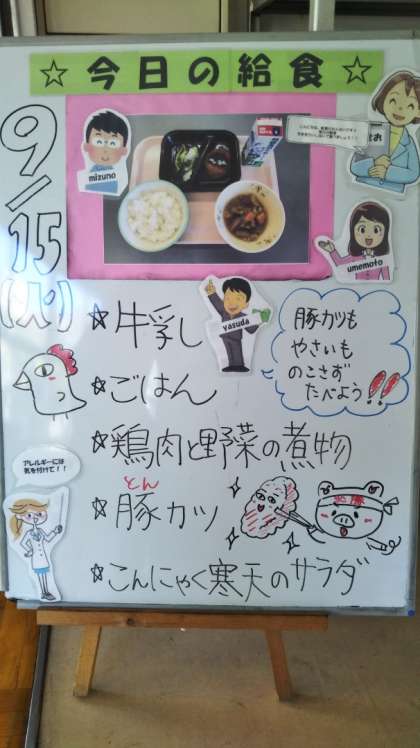 ☆今日の給食☆
9/15(火)
mizuno
umemoto
yasuda
☆牛乳し
☆ごはん
豚カツも
やさいも
のこさず
たべよう!!
☆鶏肉と野菜の煮物
アレルギーには
気を付けて!!
とん
☆豚カツ
必勝
☆こんにゃく寒天のサラダ